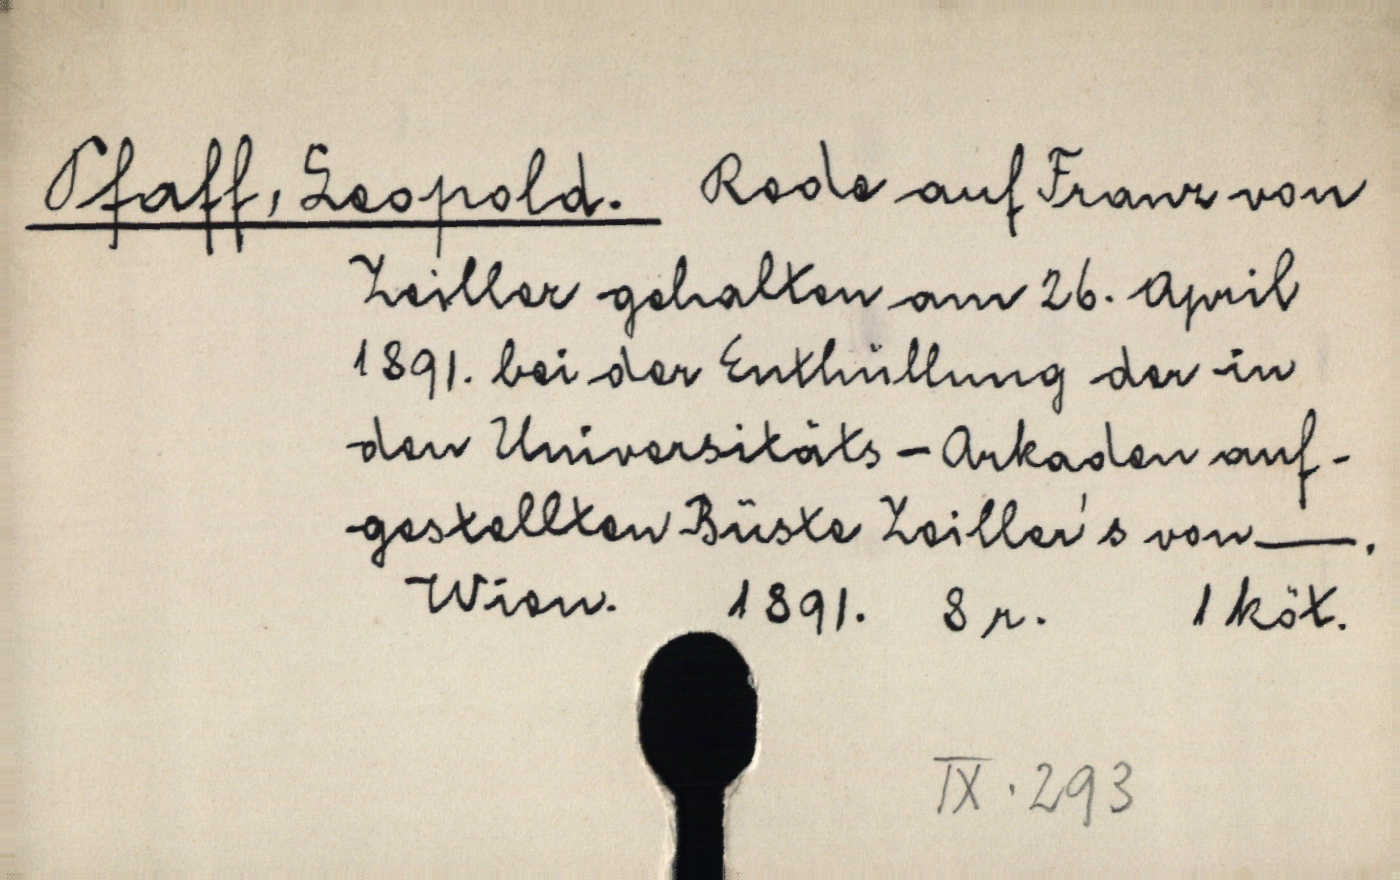 Pfaff, Leopold. Rede auf Franz von
Zeiller gehalten am 26. April
1891. bei der Enthüllung der in
den Universitäts - Arkaden auf-
gestellten Büste Zeiller's von —.
Wien. 1891. 8 r. 1 köt.
IX. 293